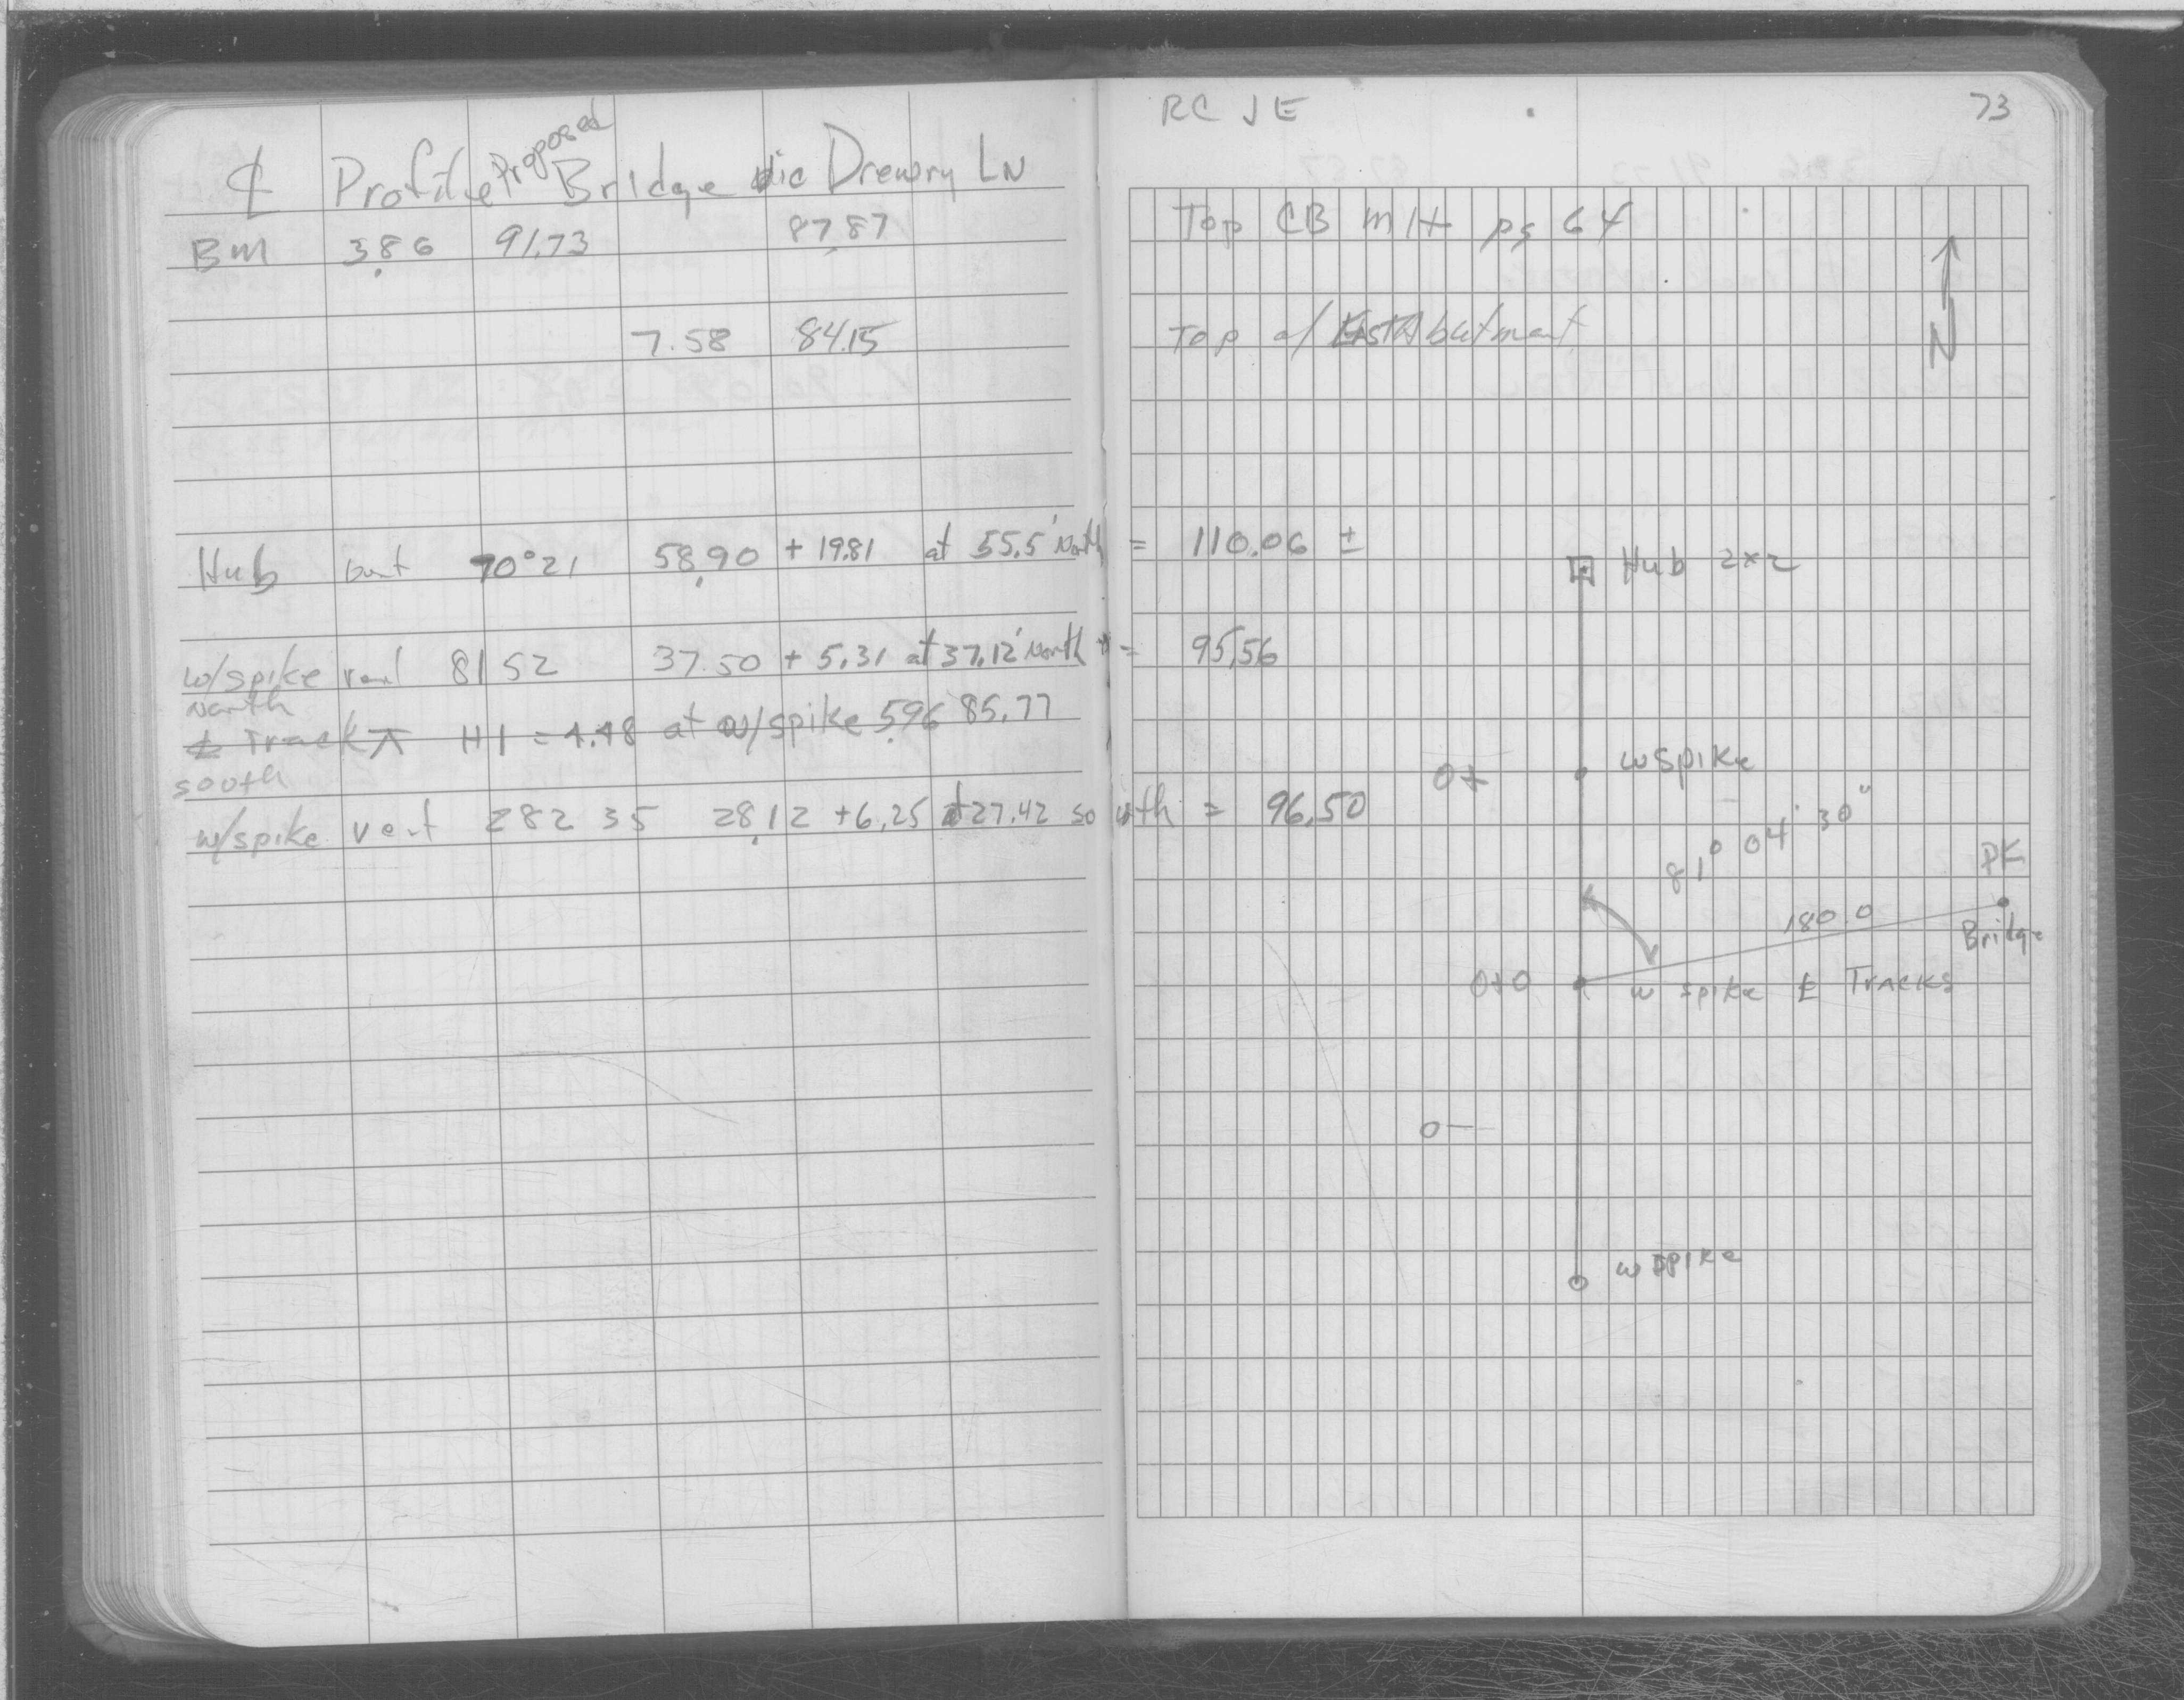 ℄ Profile Proposed Bridge vic Drewry LN
BM 3.86 91.73 87.87
7.58 84.15
Hub vert 70°21 58.90 + 19.81 at 55.5' North = 110.06 ±
w/spike vert 81 52 37.50 + 5.31 at 37.12' North = 95.56
North
℄ Track ⊼ HI = 4.48 at w/spike 5.96 85.77
south
w/spike vert 282 35 28.12 + 6.25 at 27.42 south = 96.50
RC JE 73
Top CB MH pg 64
Top of East Abutment
N
Hub 2x2
0+ w spike
81° 04' 30"
PK
180 0
Bridge
0+0 w spike ℄ Tracks
0—
w spike